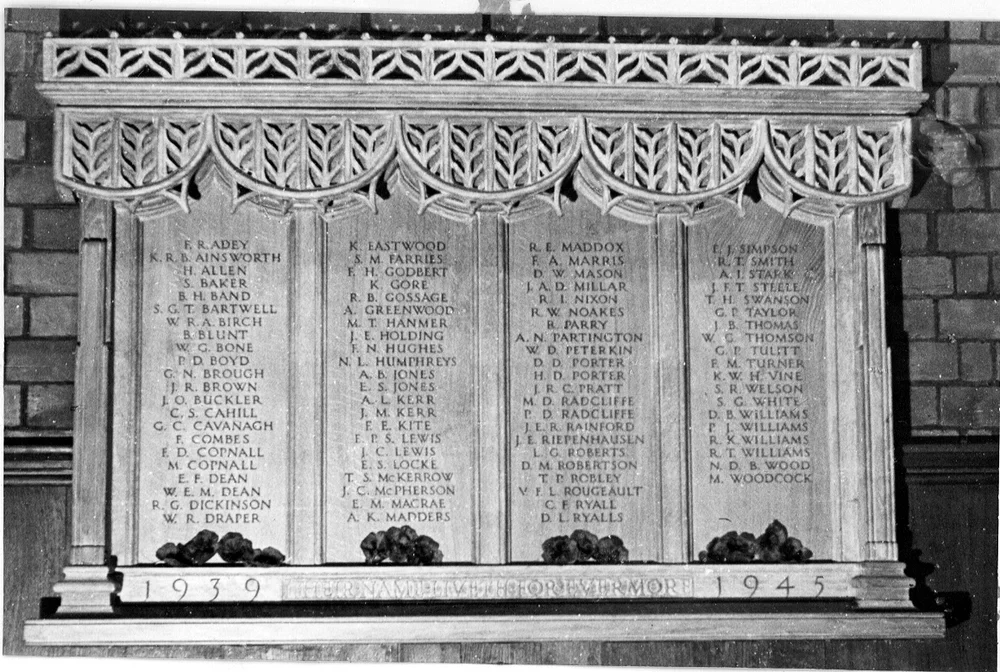 F. R. ADEY
K. R. B. AINSWORTH
H. ALLEN
S. BAKER
B. H. BAND
S. G. T. BARTWELL
W. R. A. BIRCH
B. BLUNT
W. G. BONE
P. D. BOYD
G. N. BROUGH
J. R. BROWN
J. O. BUCKLER
C. S. CAHILL
G. C. CAVANAGH
F. COMBES
F. D. COPNALL
M. COPNALL
E. F. DEAN
W. E. M. DEAN
R. G. DICKINSON
W. R. DRAPER
K. EASTWOOD
S. M. FARRIES
F. H. GODBERT
K. GORE
R. B. GOSSAGE
A. GREENWOOD
M. T. HANMER
J. E. HOLDING
F. N. HUGHES
N. L. HUMPHREYS
A. B. JONES
E. S. JONES
A. L. KERR
J. M. KERR
F. E. KITE
E. P. S. LEWIS
J. C. LEWIS
E. S. LOCKE
T. S. McKERROW
J. C. McPHERSON
E. M. MACRAE
A. K. MADDERS
R. E. MADDOX
F. A. MARRIS
D. W. MASON
J. A. D. MILLAR
R. I. NIXON
R. W. NOAKES
B. PARRY
A. N. PARTINGTON
W. D. PETERKIN
D. D. PORTER
H. D. PORTER
J. R. C. PRATT
M. D. RADCLIFFE
P. D. RADCLIFFE
J. E. R. RAINFORD
J. E. RIEPENHAUSEN
L. G. ROBERTS
D. M. ROBERTSON
T. P. ROBLEY
V. F. L. ROUGEAULT
C. F. RYALL
D. L. RYALLS
F. J. SIMPSON
R. T. SMITH
A. I. STARK
J. F. T. STEELE
T. H. SWANSON
G. P. TAYLOR
J. B. THOMAS
W. G. THOMSON
G. P. TULITT
F. M. TURNER
K. W. H. VINE
S. R. WELSON
S. G. WHITE
D. B. WILLIAMS
P. J. WILLIAMS
R. K. WILLIAMS
R. T. WILLIAMS
N. D. B. WOOD
M. WOODCOCK
1939 THEIR NAME LIVETH FOR EVERMORE 1945